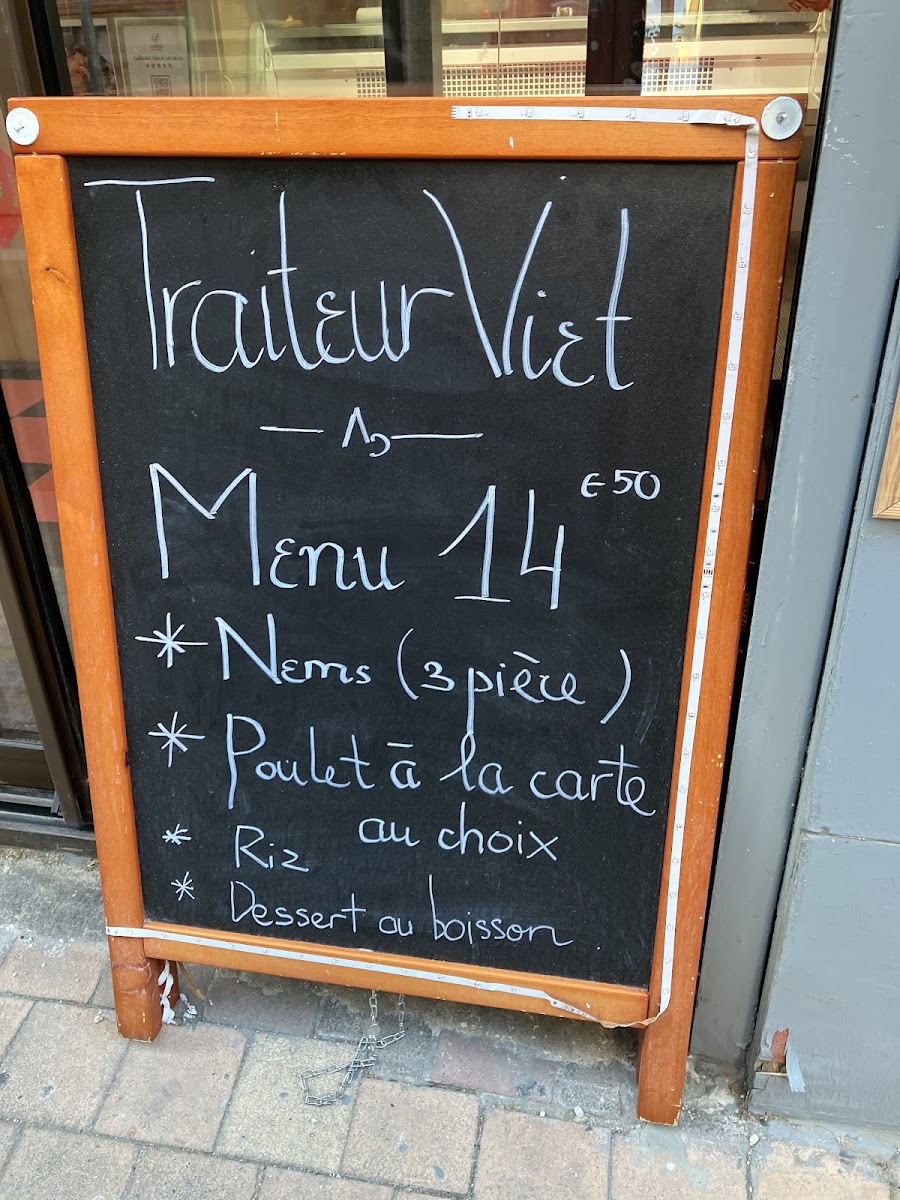 Traiteur Viet
Menu 14€50
* Nems (3 pière)
* Poulet à la carte
au choix
* Riz
* Dessert ou boisson